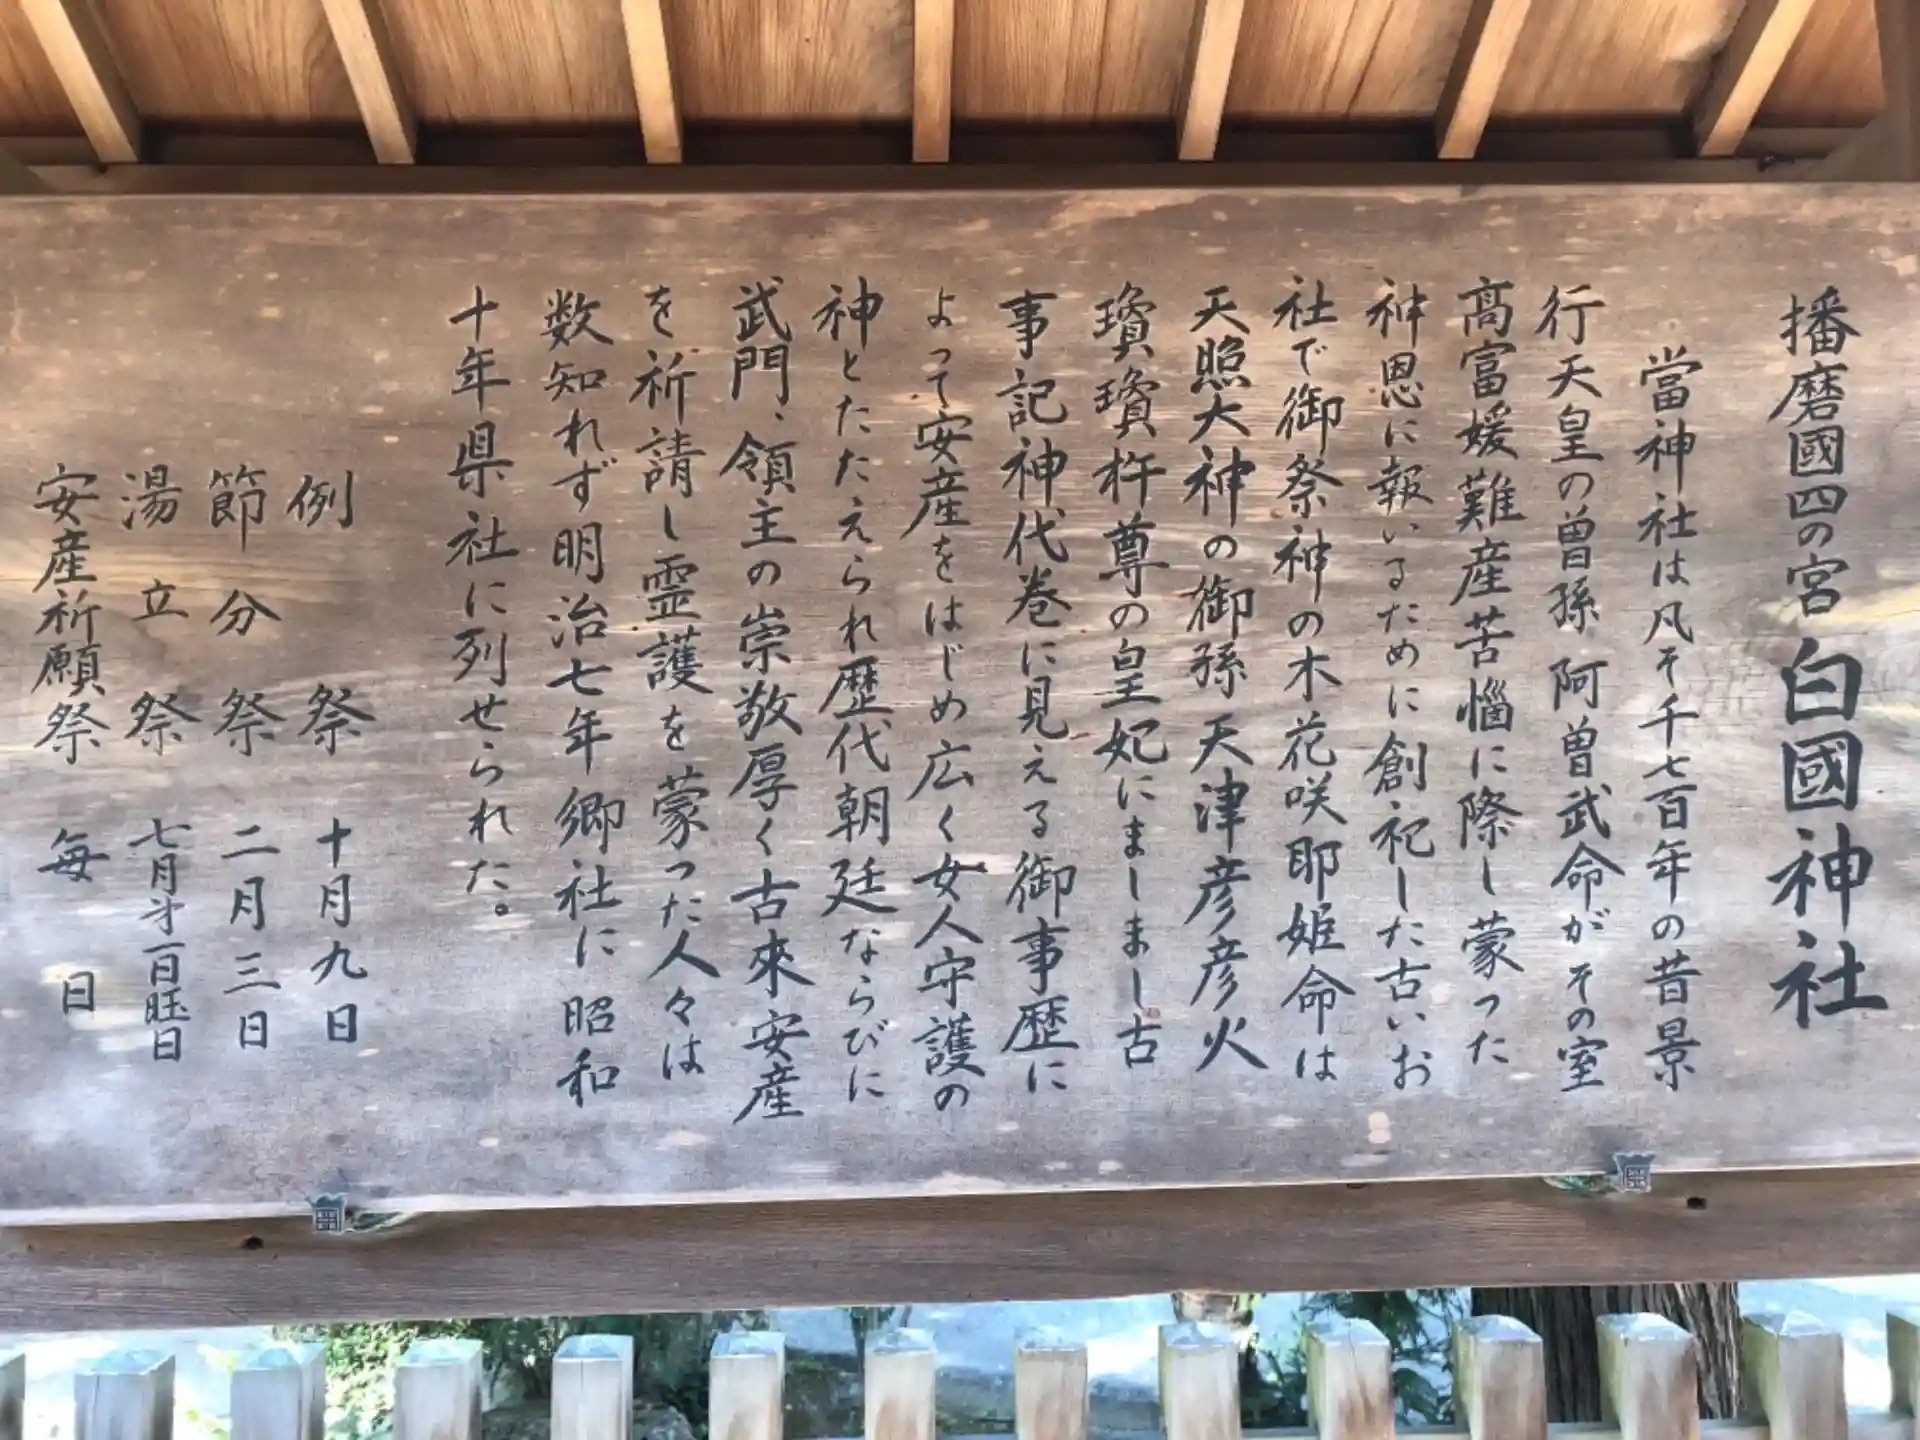 播磨國四の宮 白國神社
當神社は凡そ千七百年の昔景
行天皇の曽孫 阿曽武命が その室
高富媛難産苦惱に際し蒙った
神恩に報いるために創祀した古いお
社で御祭神の木花咲耶姫命は
天照大神の御孫 天津彦彦火
瓊瓊杵尊の皇妃にましまし古
事記神代巻に見える御事歴に
よって安産をはじめ広く女人守護の
神とたたえられ歴代朝廷ならびに
武門、領主の崇敬厚く古來安産
を祈請し霊護を蒙った人々は
数知れず明治七年 郷社に 昭和
十年県社に列せられた。
例 祭 十月九日
節分祭 二月三日
湯立祭 七月才一日曜日
安産祈願祭 毎日